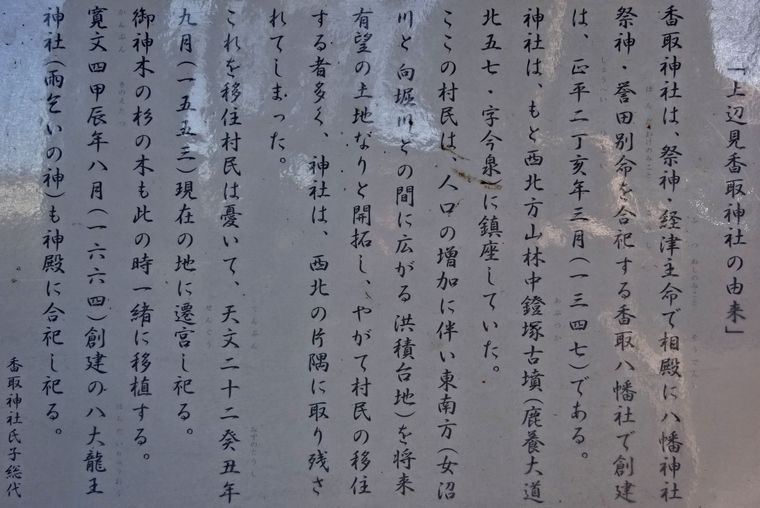 「上辺見香取神社の由来」
香取神社は、祭神・経津主命で相殿に八幡神社
祭神・誉田別命を合祀する香取八幡社で創建
は、正平二丁亥年三月(一三四七)である。
神社は、もと西北方山林中鐙塚古墳(鹿養大道
北五七・字今泉)に鎮座していた。
ここの村民は、人口の増加に伴い東南方(女沼
川と向堀川との間に広がる洪積台地)を将来
有望の土地なりと開拓し、やがて村民の移住
する者多く、神社は、西北の片隅に取り残さ
れてしまった。
これを移住村民は憂いて、天文二十二癸丑年
九月(一五五三)現在の地に遷宮し祀る。
御神木の杉の木も此の時一緒に移植する。
寛文四甲辰年八月(一六六四)創建の八大龍王
神社(雨乞いの神)も神殿に合祀し祀る。
香取神社氏子総代